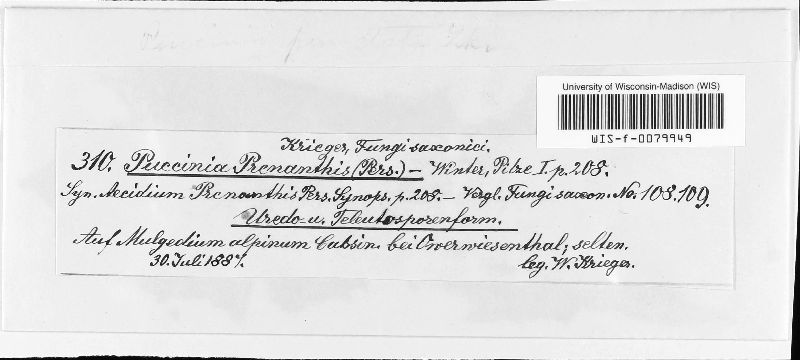 University of Wisconsin-Madison (WIS)
WIS-f-0079949
Krieger, Fungi saxonici.
310. Puccinia Prenanthis (Pers.) – Winter, Pilze I. p. 208.
Syn. Aecidium Prenanthis Pers. Synops. p. 208. – Vergl. Fungi saxon. No. 108.109.
Uredo- u. Teleutosporenform.
Auf Mulgedium alpinum Cassin. bei Oberwiesenthal; selten.
30. Juli 1887.
leg. W. Krieger.